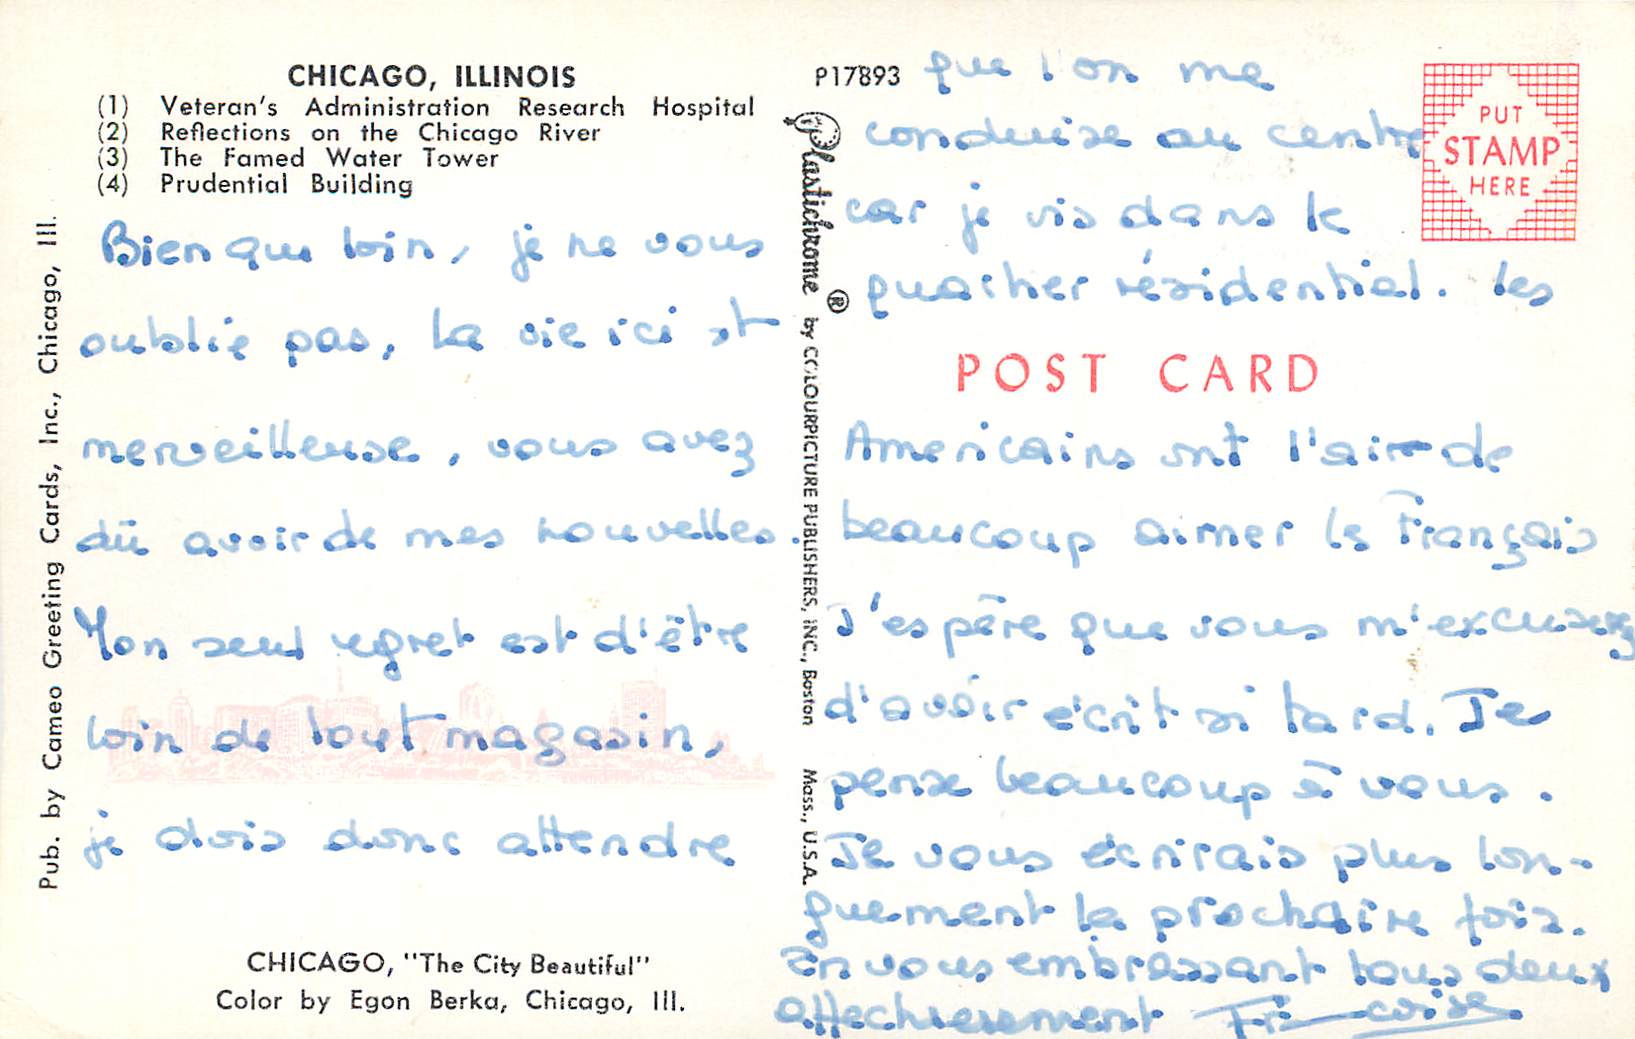 CHICAGO, ILLINOIS
(1) Veteran's Administration Research Hospital
(2) Reflections on the Chicago River
(3) The Famed Water Tower
(4) Prudential Building
Bien que loin, je ne vous
oublie pas, la vie ici est
merveilleuse, vous avez
dû avoir de mes nouvelles.
Mon seul regret est d'être
loin de tout magasin,
je dois donc attendre
CHICAGO, "The City Beautiful"
Color by Egon Berka, Chicago, Ill.
Pub. by Cameo Greeting Cards, Inc., Chicago, Ill.
Plastichrome ® by COLOURPICTURE PUBLISHERS, INC., Boston Mass., U.S.A.
P17893
que l'on me
conduise au centre
car je vis dans le
quartier résidentiel. les
PUT
STAMP
HERE
POST CARD
Americains ont l'air de
beaucoup aimer les Français
J'espère que vous m'excuserez
d'avoir écrit si tard. Je
pense beaucoup à vous.
Je vous écrirais plus lon-
guement la prochaire fois.
En vous embrassant tous deux
affectueusement Françoise